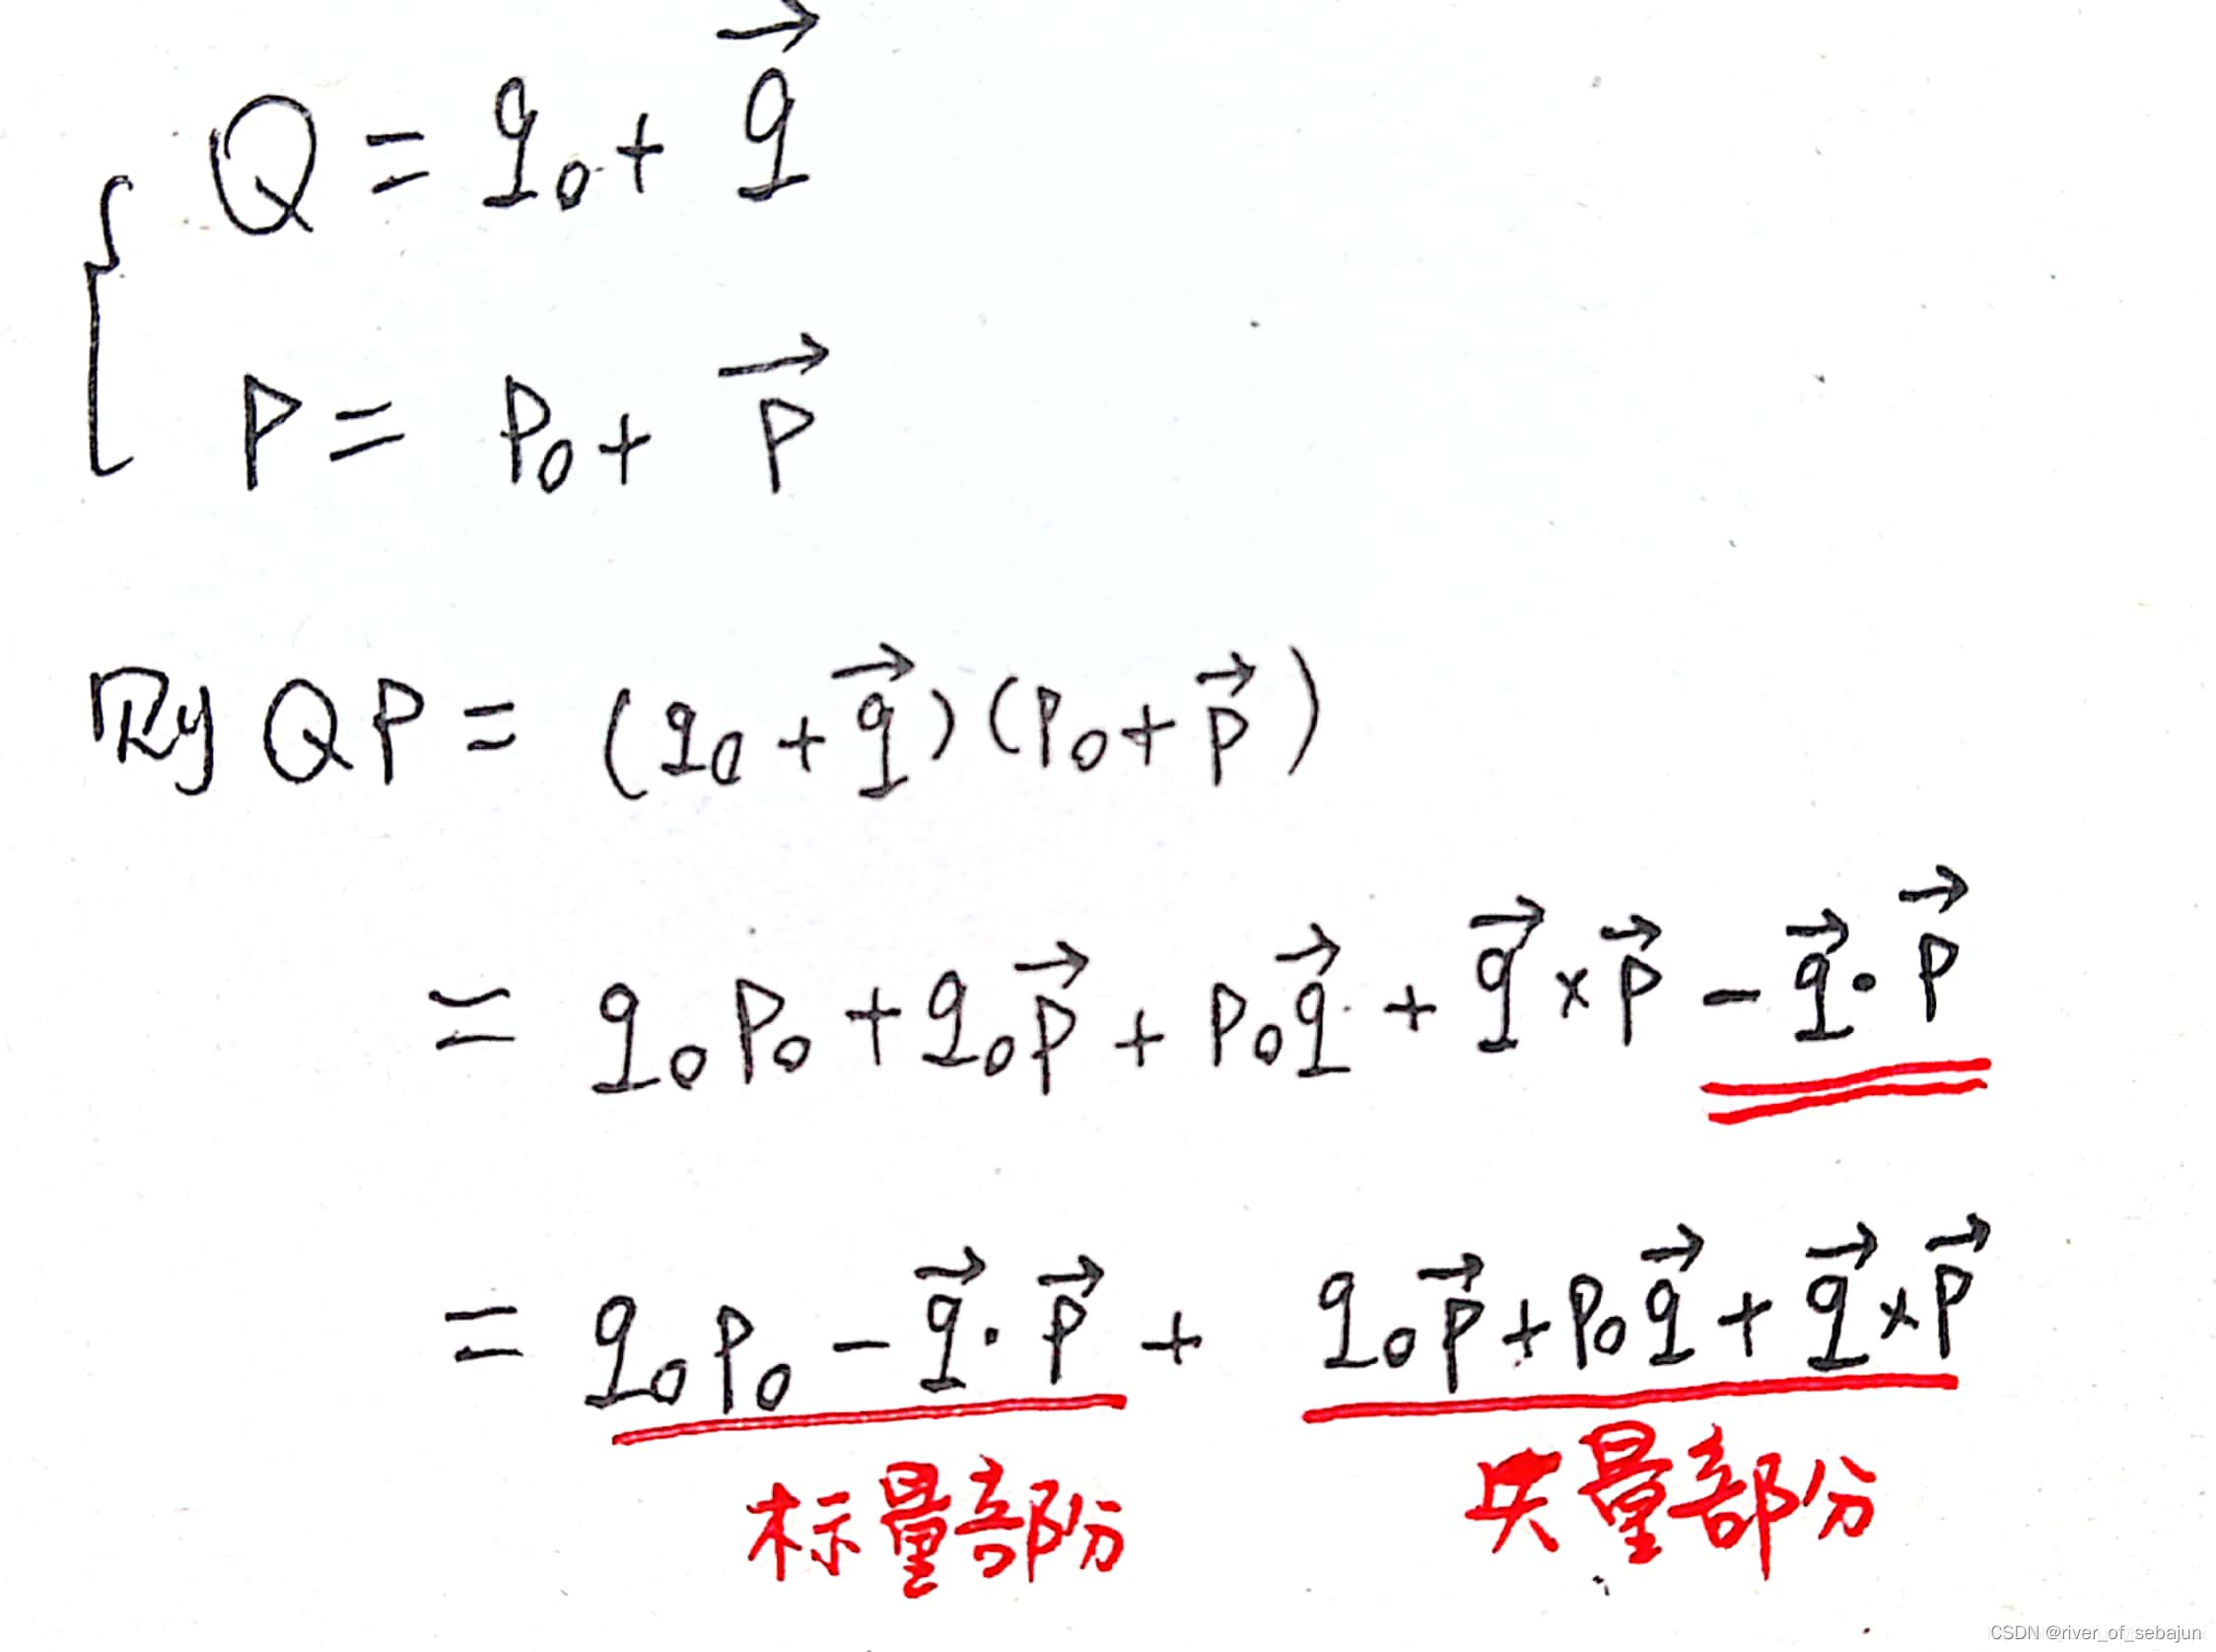 Q = q₀ + q⃗
P = P₀ + P⃗
则 QP = (q₀ + q⃗)(P₀ + P⃗)
= q₀P₀ + q₀P⃗ + P₀q⃗ + q⃗ × P⃗ - q⃗ · P⃗
= q₀P₀ - q⃗ · P⃗ + q₀P⃗ + P₀q⃗ + q⃗ × P⃗
标量部分 矢量部分
CSDN @river_of_sebajun